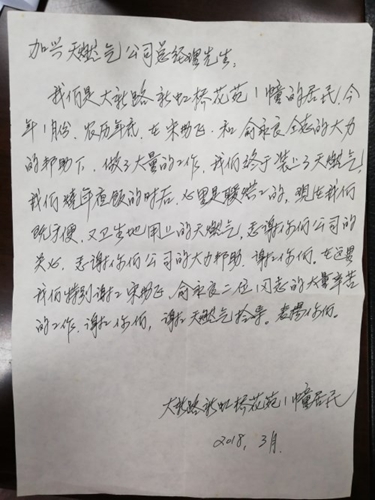 加兴天燃气公司总经理先生:
我们是大新路新虹桥花苑1幢的居民,今
年1月份,农历年底,在宋助飞和俞永良仝志的大力
的帮助下,做了大量的工作,我们终于装上了天燃气,
我们烧年夜饭的时后,心里是暖喏工的,现在我们
既方便,又卫生地用上的天燃气,感谢你们公司的
关心,感谢你们公司的大力帮助,谢工你们,在这里
我们特别谢工宋助飞,俞永良二位同志的大量辛苦
的工作,谢工你们,谢工天燃气领导。表扬你们。
大新路新虹桥花苑1幢居民
2018,3月